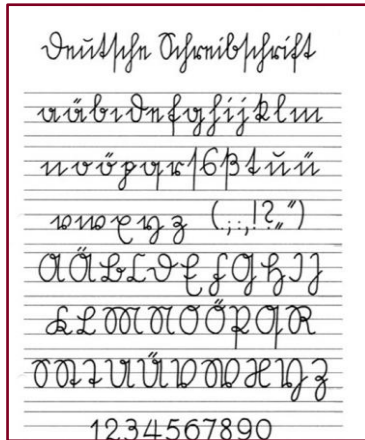 Deutsche Schreibschrift
aäbcdefghijklm
noöpqrſsßtuü
vwxyz (.;:,!?„“)
AÄBCDEFGHIJ
KLMNOÖPQR
SStTUÜVWXYZ
1234567890